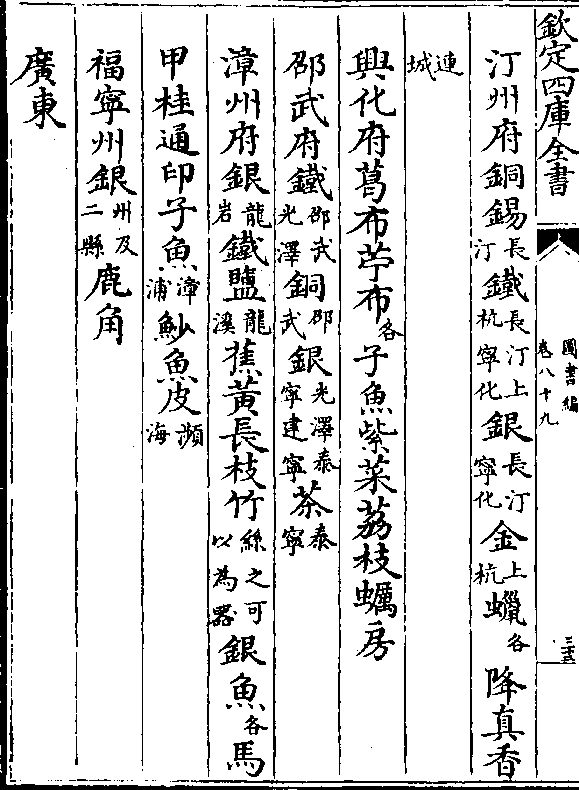 欽定四庫全書
圖書編
卷八十九
汀州府銅錫長汀鐵長汀上杭寧化銀長汀寧化金上杭蠟各降真香
連城
興化府葛布苧布各子魚紫菜荔枝蠣房
邵武府鐵邵武光澤銅邵武銀光澤泰寧建寧茶泰寧
漳州府銀龍岩鐵鹽龍溪蕉黃長枝竹絲之可以為器銀魚各馬
甲桂通印子魚漳浦魦魚皮瀕海
福寧州銀州及二縣鹿角
廣東